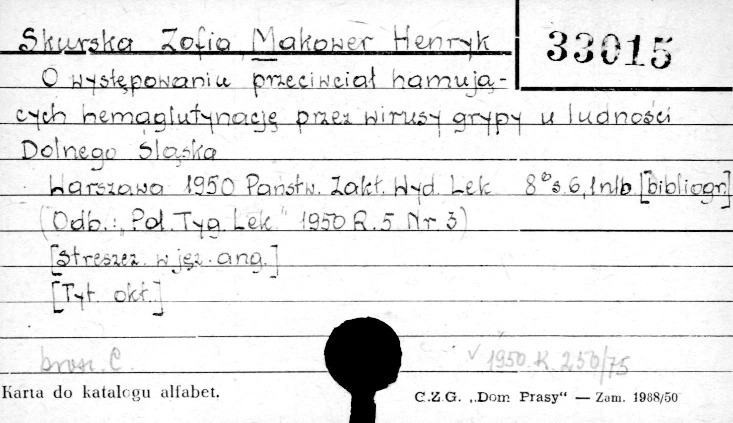 Skurska Zofia, Makower Henryk 33015
O występowaniu przeciwciał hamują-
cych hemaglutynację przez wirusy grypy u ludności
Dolnego Śląska
Warszawa 1950 Państw. Zakł. Wyd. Lek 8° s. 6, 1 nlb. [bibliogr.]
(Odb.: „Pol. Tyg. Lek." 1950 R. 5 Nr. 3)
[Streszcz. w jęz. ang.]
[Tyt. okł.]
brosz. C. √ 1950. K. 250/75
Karta do katalogu alfabet. C.Z.G. „Dom Prasy“ — Zam. 1988/50